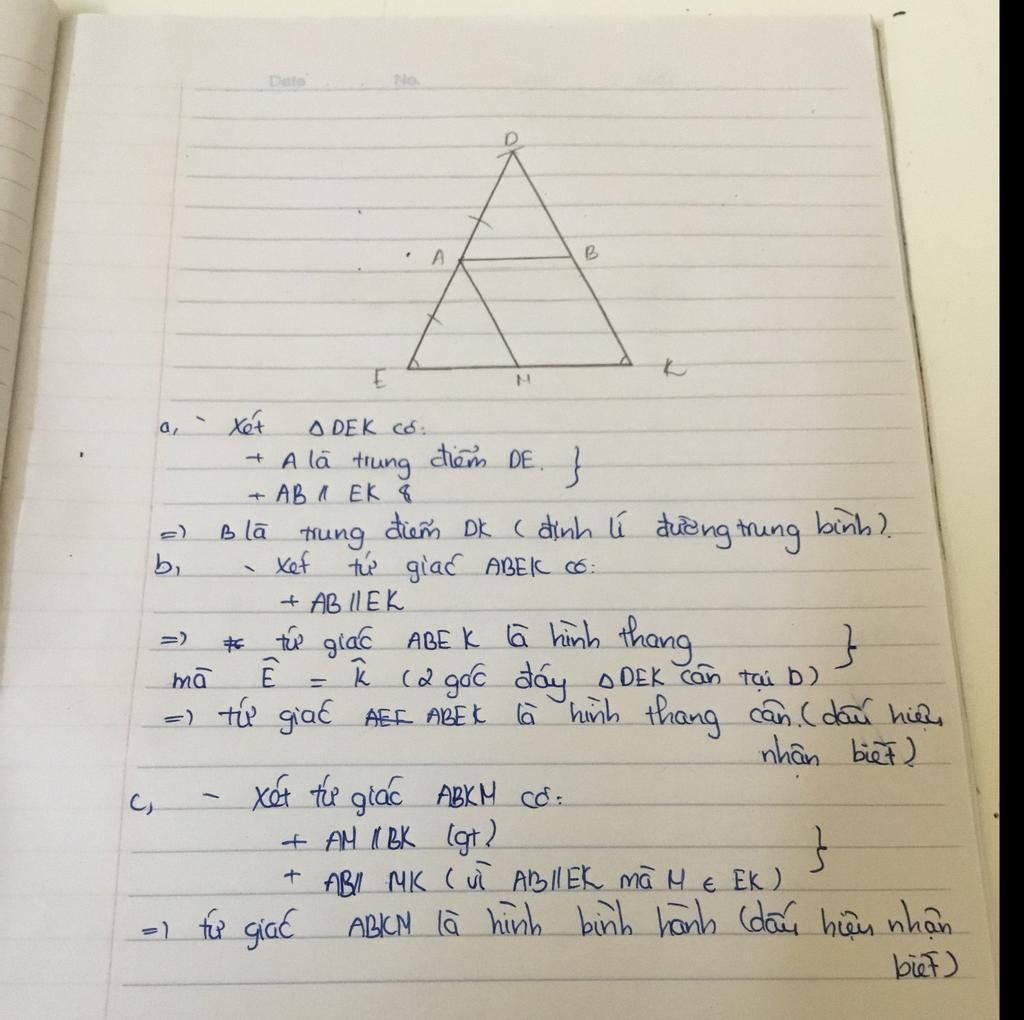 Date No.
D
A B
E M K
a, - Xét Δ DEK có:
+ A là trung điểm DE. }
+ AB // EK
=) B là trung điểm DK (định lí đường trung bình).
b, - Xét tứ giác ABEK có:
+ AB // EK
=) tứ giác ABEK là hình thang }
mà Ê = K̂ (2 góc đáy Δ DEK cân tại D)
=) tứ giác ABEK là hình thang cân. (dấu hiệu
nhận biết)
c, - Xét tứ giác ABKM có:
+ AM // BK (gt) }
+ AB // MK (vì AB // EK mà M ∈ EK)
=) tứ giác ABKM là hình bình hành (dấu hiệu nhận
biết)